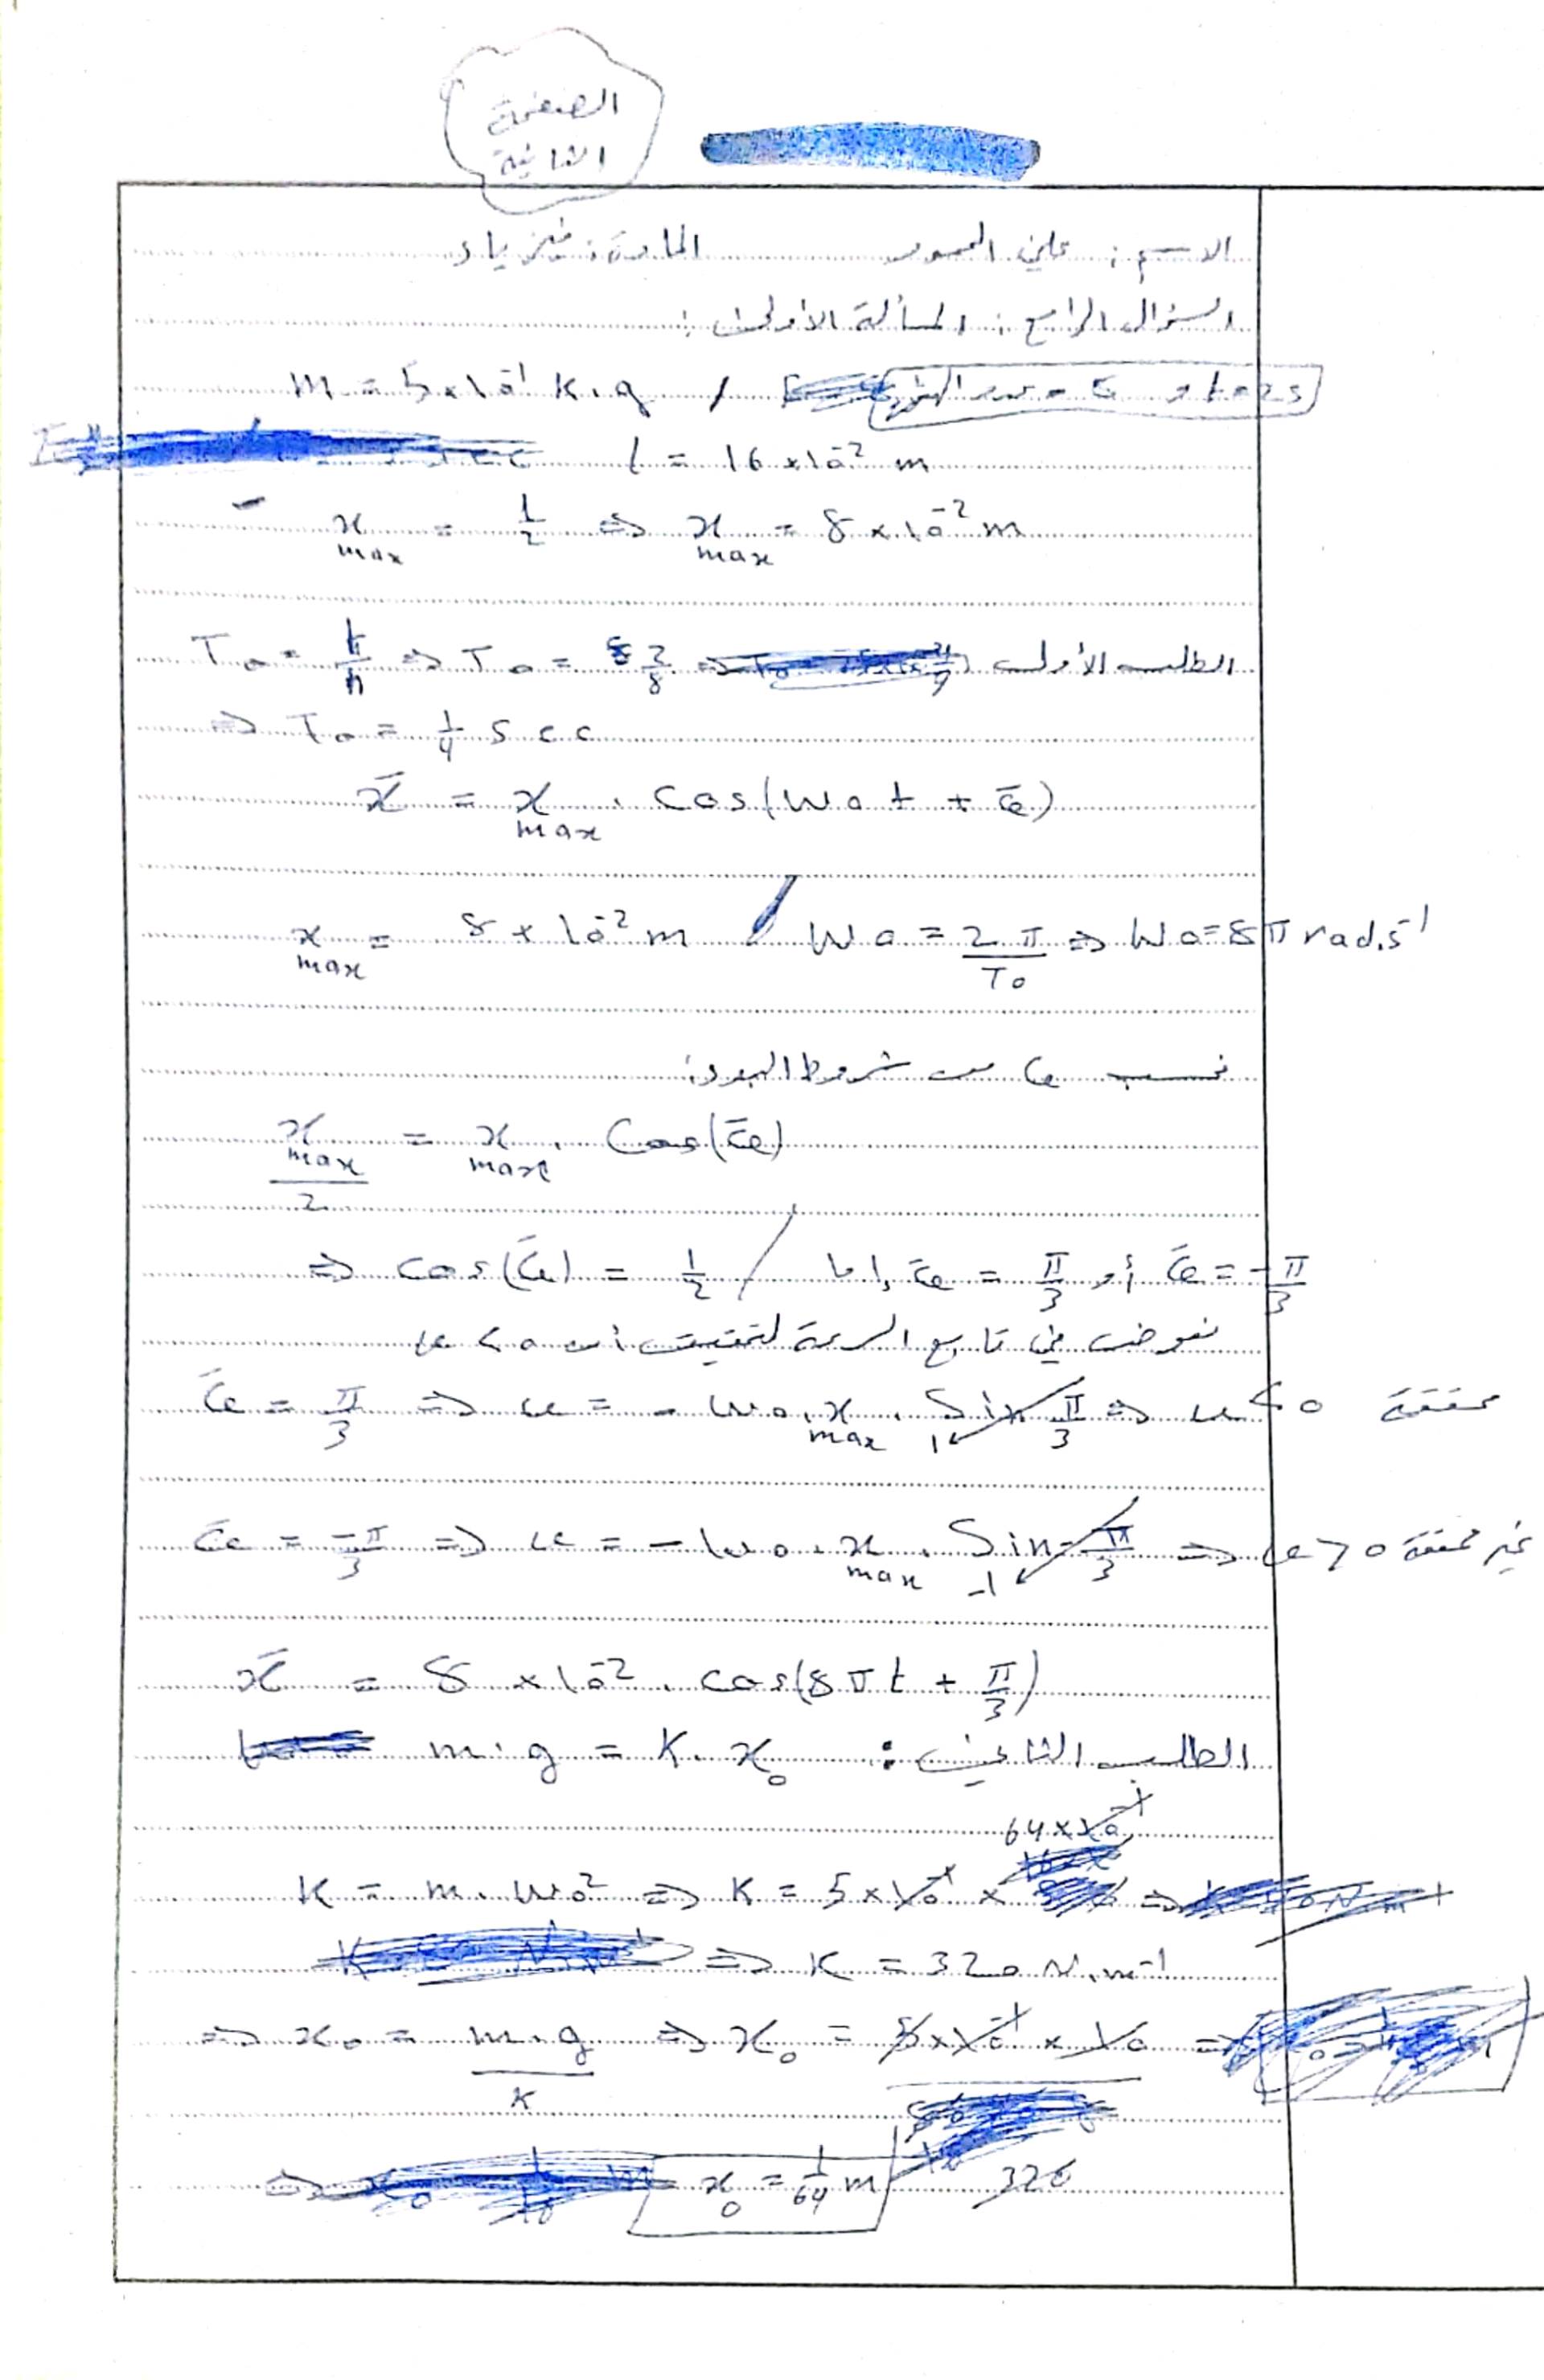 الصفحة
الثانية
الاسم: علي المادة: فيزياء
السؤال الرابع: المسألة الأولى:
m = 5×10⁻¹ k.g / t=2s
l = 16×10⁻² m
x max = l/2 ⇒ x max = 8×10⁻² m
الطلب الأول T₀ = t/n ⇒ T₀ = 2/8
⇒ T₀ = 1/4 sec
x̄ = x max . cos(ω₀t + φ̄)
x max = 8×10⁻² m / ω₀ = 2π/T₀ ⇒ ω₀ = 8π rad.s⁻¹
نحسب φ من شروط البدء:
x max/2 = x max . Cos(φ̄)
⇒ cos(φ̄) = 1/2 / إما φ̄ = π/3 أو φ̄ = -π/3
نعوض في تابع السرعة لتحقيق أن v < 0
φ̄ = π/3 ⇒ v = -ω₀ . x max . Sin π/3 ⇒ v < 0 محققة
1
φ̄ = -π/3 ⇒ v = -ω₀ . x max . Sin -π/3 ⇒ v > 0 غير محققة
-1
x̄ = 8×10⁻² . cos(8πt + π/3)
الطلب الثاني: m.g = K.x₀
64×10⁻¹
K = m.ω₀² ⇒ K = 5×10⁻¹ × ⇒
⇒ K = 320 N.m⁻¹
⇒ x₀ = m.g/K ⇒ x₀ = 5×10⁻¹×10 / 320 ⇒
⇒ x₀ = 1/64 m